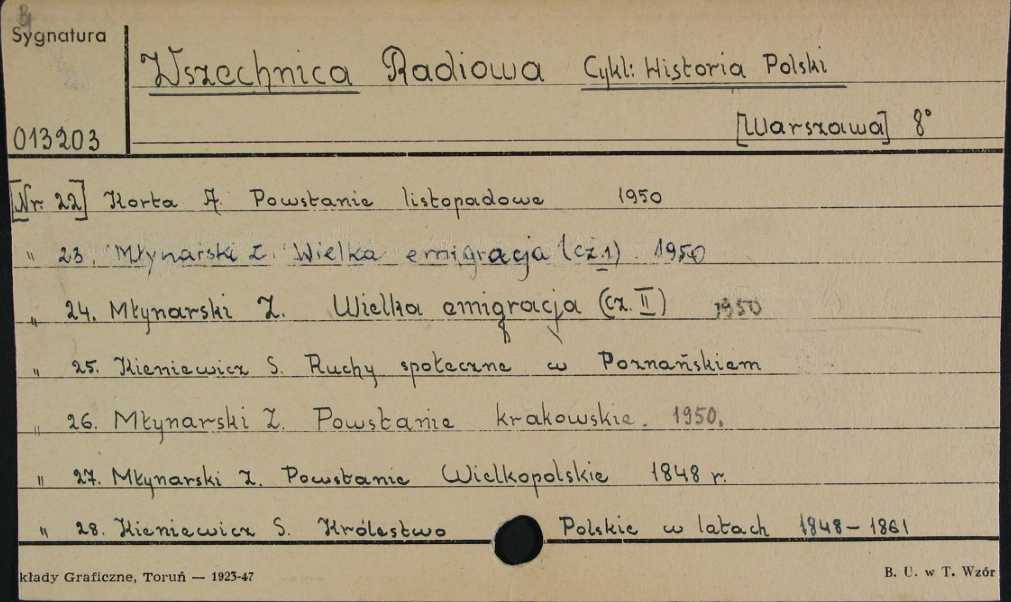 Sygnatura
Wszechnica Radiowa Cykl: Historia Polski
[Warszawa] 8°
013203
[Nr. 22] Korta A. Powstanie listopadowe 1950
" 23. Młynarski Z. Wielka emigracja (cz. 1) 1950
" 24. Młynarski Z. Wielka emigracja (cz. II) 1950
" 25. Kieniewicz S. Ruchy społeczne w Poznańskiem
" 26. Młynarski Z. Powstanie krakowskie. 1950.
" 27. Młynarski Z. Powstanie Wielkopolskie 1848 r.
" 28. Kieniewicz S. Królestwo Polskie w latach 1848-1861
kłady Graficzne, Toruń — 1923-47
B. U. w T. Wzór